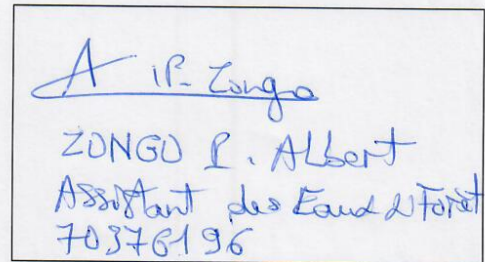 A iP-Zongo
ZONGO P. Albert
Assistant des Eaux et Forêt
70376196